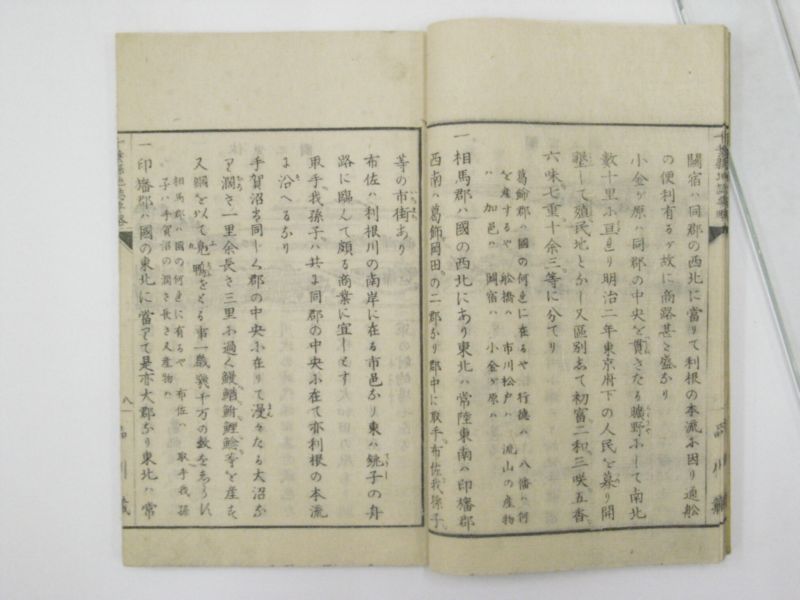 關宿ハ同郡の西北に當りて利根の本流ふ因り通舩
の便利有るヶ故に商路甚さ盛かり
小金ヶ原ハ同郡の中央を貫きたる曠野ふして南北
數十里ふ亘り明治二年東京府下の人民を募り開
墾して殖民地とかし又區別志て初富二和三咲五香
六味七重十余三等に分てり
葛飾郡ハ國の何邑に在るや 行德ハ 八幡ハ何
を産するや 舩橋ハ 市川松戸ハ 流山の産物
ハ 加邑ハ 關宿ハ 小金ヶ原ハ
一 相馬郡ハ國の西北にあり東北ハ常陸東南ハ印旛郡
西南ハ葛飾岡田の二郡かり郡中に取手布佐我孫子
等の市街あり
布佐ハ利根川の南岸に在る市邑かり東ハ銚子の舟
路に臨んて頗る商業に宜しとす
取手我孫子ハ共よ同郡の中央ふ在て亦利根の本流
よ沿へるかり
手賀沼は同しく郡の中央ふ在りて漫々たる大沼か
り濶さ一里余長さ三里ふ過く鰻鯔鮒鯉鯰等を産す
又網を以て鳬鴨をとる事一歳幾千万の數をしらす
相馬郡ハ國の何邑に有るや 布佐ハ 取手我孫
子ハ手賀沼の濶さ長さ又産物ハ
一 印旛郡ハ國の東北に當りて是亦大郡かり東北ハ常
八
品川藏